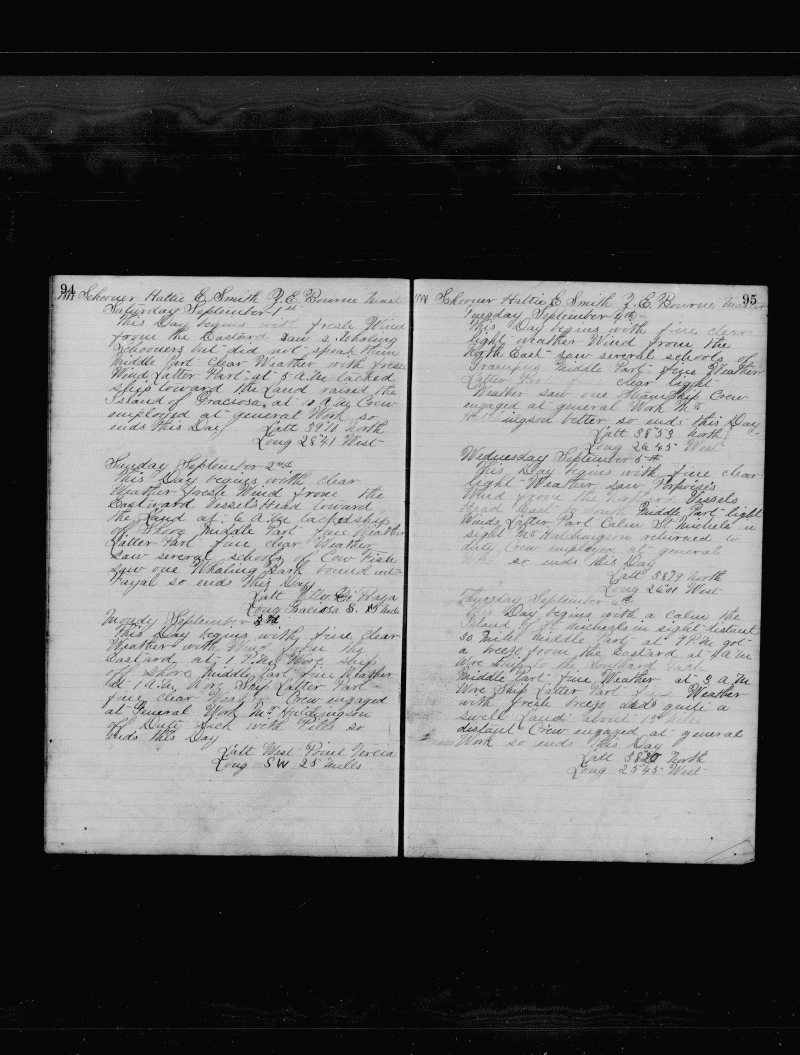 94
Schooner Hattie E Smith Z. E. Bourne Mast
Saturday September 1st
This Day begins with fresh Wind
from the Eastard saw 2 Whaling
Schooners but did not speak them
Middle Part Clear Weather with fresh
Wind Latter Part at 5 A.M tacked
ship toward the Land raised the
Island of Graciosa at 10 A.M Crew
employed at general Work so
ends this Day Latt 39"10 North
Long 28"41 West
Sunday September 2nd
This Day begins with clear
Weather fresh Wind from the
Eastward Vessels Head toward
the Land at 6 A.M tacked ship
off Shore Middle Part fine Weather
Latter Part fine clear Weather
saw several schools of Cow Fish
saw one Whaling Bark bound
Fayal so ends this Day
Latt
Long Graciosa S. 15 Mils
Mondy September 3rd
This Day begins with fine Clear
Weather with Wind from the
Eastard at 1 P.M Wore ship
off Shore Middle Part fine Weather
at 1 A.M Wore Ship Latter Part
fine clear Weather Crew engaged
at General Work Mr Hutchingson
off Duty Sick with Piles so
ends this Day
Latt West Point Terceia
Long SW 25 Mills
95
Schooner Hattie E Smith Z. E. Bourne Master
Tuesday September 4th
This Day begins with fine clear
light weather Wind from the
North East saw several schools of
Grampus Middle Part fine Weather
Latter Part fine clear light
Weather saw one Steamship Crew
engaged at general Work Mr
better so ends this Day
Latt 38"53 North
Long 26"45 West
Wednesday September 5th
This Day begins with fine clear
light Weather saw Porpoises
Wind from the Vessels
Head East Middle Part light
Winds Latter Part Calm St Michels in
sight Mr Hutchingson returned to
duty Crew employed at general
so ends this Day
Latt 38"39 North
Long 26"01 West
Thursday September 6th
This Day begins with a calm the
Island of St Michels in sight distant
30 Miles Middle Part at 9 P.M got
a breeze from the Eastard at A.M
Wore Ship to the Southard
Middle Part fine Weather at 3 A.M
Wore Ship Latter Part fine Weather
with fresh breeze and quite a
swell Land about 15 Miles
distant Crew engaged at general
Work so ends this Day
Latt 38"20 North
Long 25"45 West